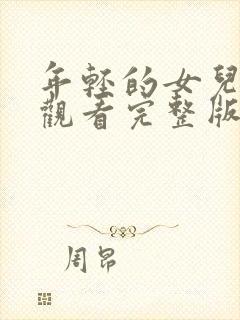 年輕的女兒
觀看完整版
周昂